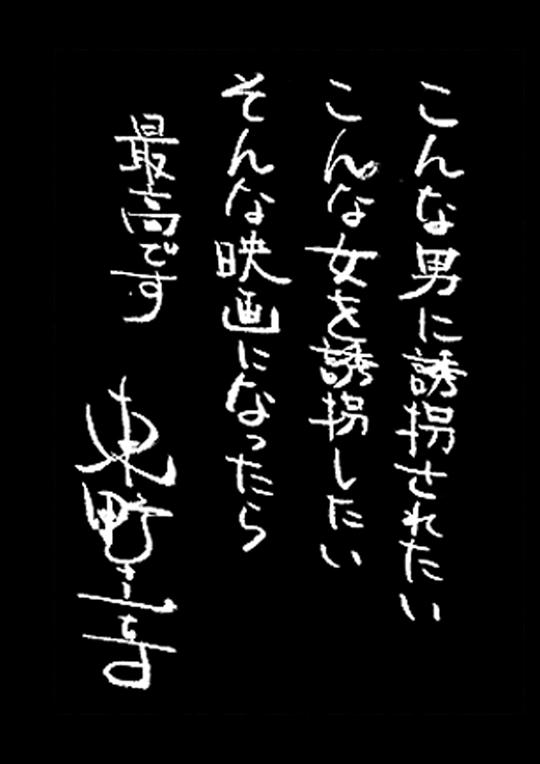 こんな男に誘拐されたい
こんな女を誘拐したい
そんな映画になったら
最高です
東野圭吾